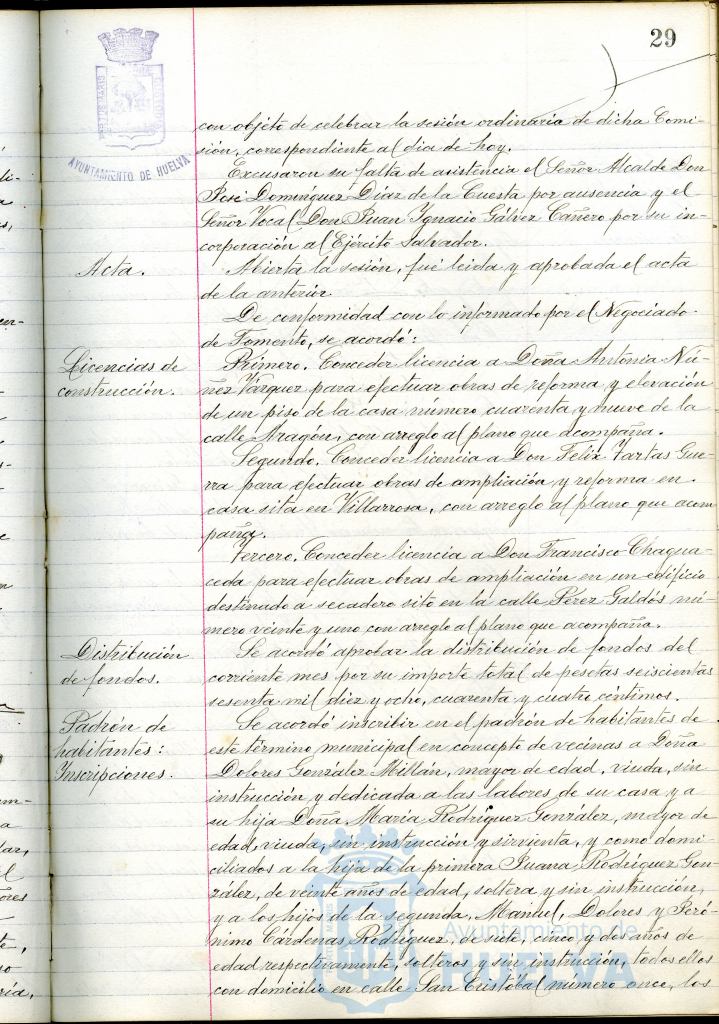 29
AYUNTAMIENTO DE HUELVA
con objeto de celebrar la sesión ordinaria de dicha Comi-
sión, correspondiente al día de hoy.
Excusaron su falta de asistencia el Señor Alcalde Don
José Domínguez Díaz de la Cuesta por ausencia y el
Señor Vocal Don Juan Ygnacio Gálvez Cañero por su in-
corporación al Ejército Salvador.
Acta.
Abierta la sesión, fué leida y aprobada el acta
de la anterior.
De conformidad con lo informado por el Negociado
de Fomento, se acordó:
Licencias de
construcción.
Primero. Conceder licencia a Doña Antonia Nú-
ñez Vázquez para efectuar obras de reforma y elevación
de un piso de la casa número cuarenta y nueve de la
calle Aragón, con arreglo al plano que acompaña.
Segundo. Conceder licencia a Don Felix Vartas Gue-
rra para efectuar obras de ampliación y reforma en
casa sita en Villarrosa, con arreglo al plano que acom
paña.
Tercero. Conceder licencia a Don Francisco Chagua-
ceda para efectuar obras de ampliación en un edificio
destinado a secadero sito en la calle Pérez Galdós nú-
mero veinte y uno con arreglo al plano que acompaña.
Distribución
de fondos.
Se acordó aprobar la distribución de fondos del
corriente mes por su importe total de pesetas seiscientas
sesenta mil diez y ocho, cuarenta y cuatro céntimos.
Padrón de
habitantes:
Inscripciones.
Se acordó inscribir en el padrón de habitantes de
este término municipal en concepto de vecinas a Doña
Dolores González Millán, mayor de edad, viuda, sin
instrucción y dedicada a las labores de su casa y a
su hija Doña María Rodríguez González, mayor de
edad, viuda, sin instrucción y sirvienta, y como domi-
ciliados a la hija de la primera Juana Rodríguez Gon-
zález, de veinte años de edad, soltera y sin instrucción,
y a los hijos de la segunda, Manuel, Dolores y Jeró-
nimo Cárdenas Rodríguez, de siete, cinco y dos años de
edad respectivamente, solteros y sin instrucción, todos ellos
con domicilio en calle San Cristóbal número once, los
Ayuntamiento de
HUELVA